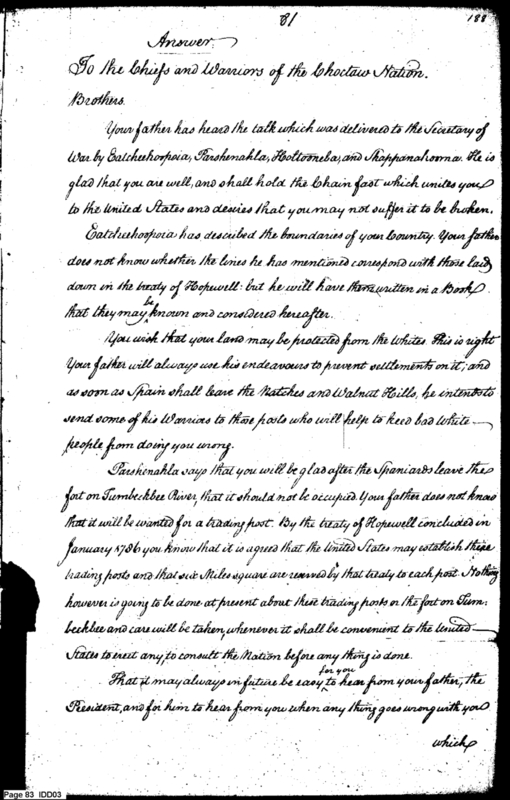 81
188
Answer
To the Chiefs and Warriors of the Choctaw Nation.
Brothers.
Your father has heard the talk which was delivered to the Secretary of
War by Eatcheehoopoia, Parshenahla, Hottooneba, and Shappanahooma. He is
glad that you are well, and shall hold the Chain fast which unites you
to the United States and desires that you may not suffer it to be broken.
Eatcheehoopoia has described the boundaries of your Country. Your father
does not know whether the lines he has mentioned correspond with those laid
down in the treaty of Hopewell: but he will have them written in a Book
that they may be known and considered hereafter.
You wish that your land may be protected from the Whites. This is right
Your father will always use his endeavours to prevent settlements on it; and
as soon as Spain shall leave the Natches and Walnut Hills, he intends to
send some of his Warriors to those posts who will help to keed bad White
people from doing you wrong.
Parshenahla says that you will be glad after the Spaniards leave the
fort on Tumbeckbee River, that it should not be occupied. Your father does not know
that it will be wanted for a trading post. By the treaty of Hopewell concluded in
January 1786 you know that it is agreed that the United States may establish three
trading posts and that six Miles square are reserved by that treaty to each post. Nothing
however is going to be done at present about these trading posts or the fort on Tum-
beckbee and care will be taken, whenever it shall be convenient to the United
States to erect any, to consult the Nation before any thing is done.
That it may always in future be easy for you to hear from your father, the
President, and for him to hear from you when any thing goes wrong with you
which
Page 83 IDD03